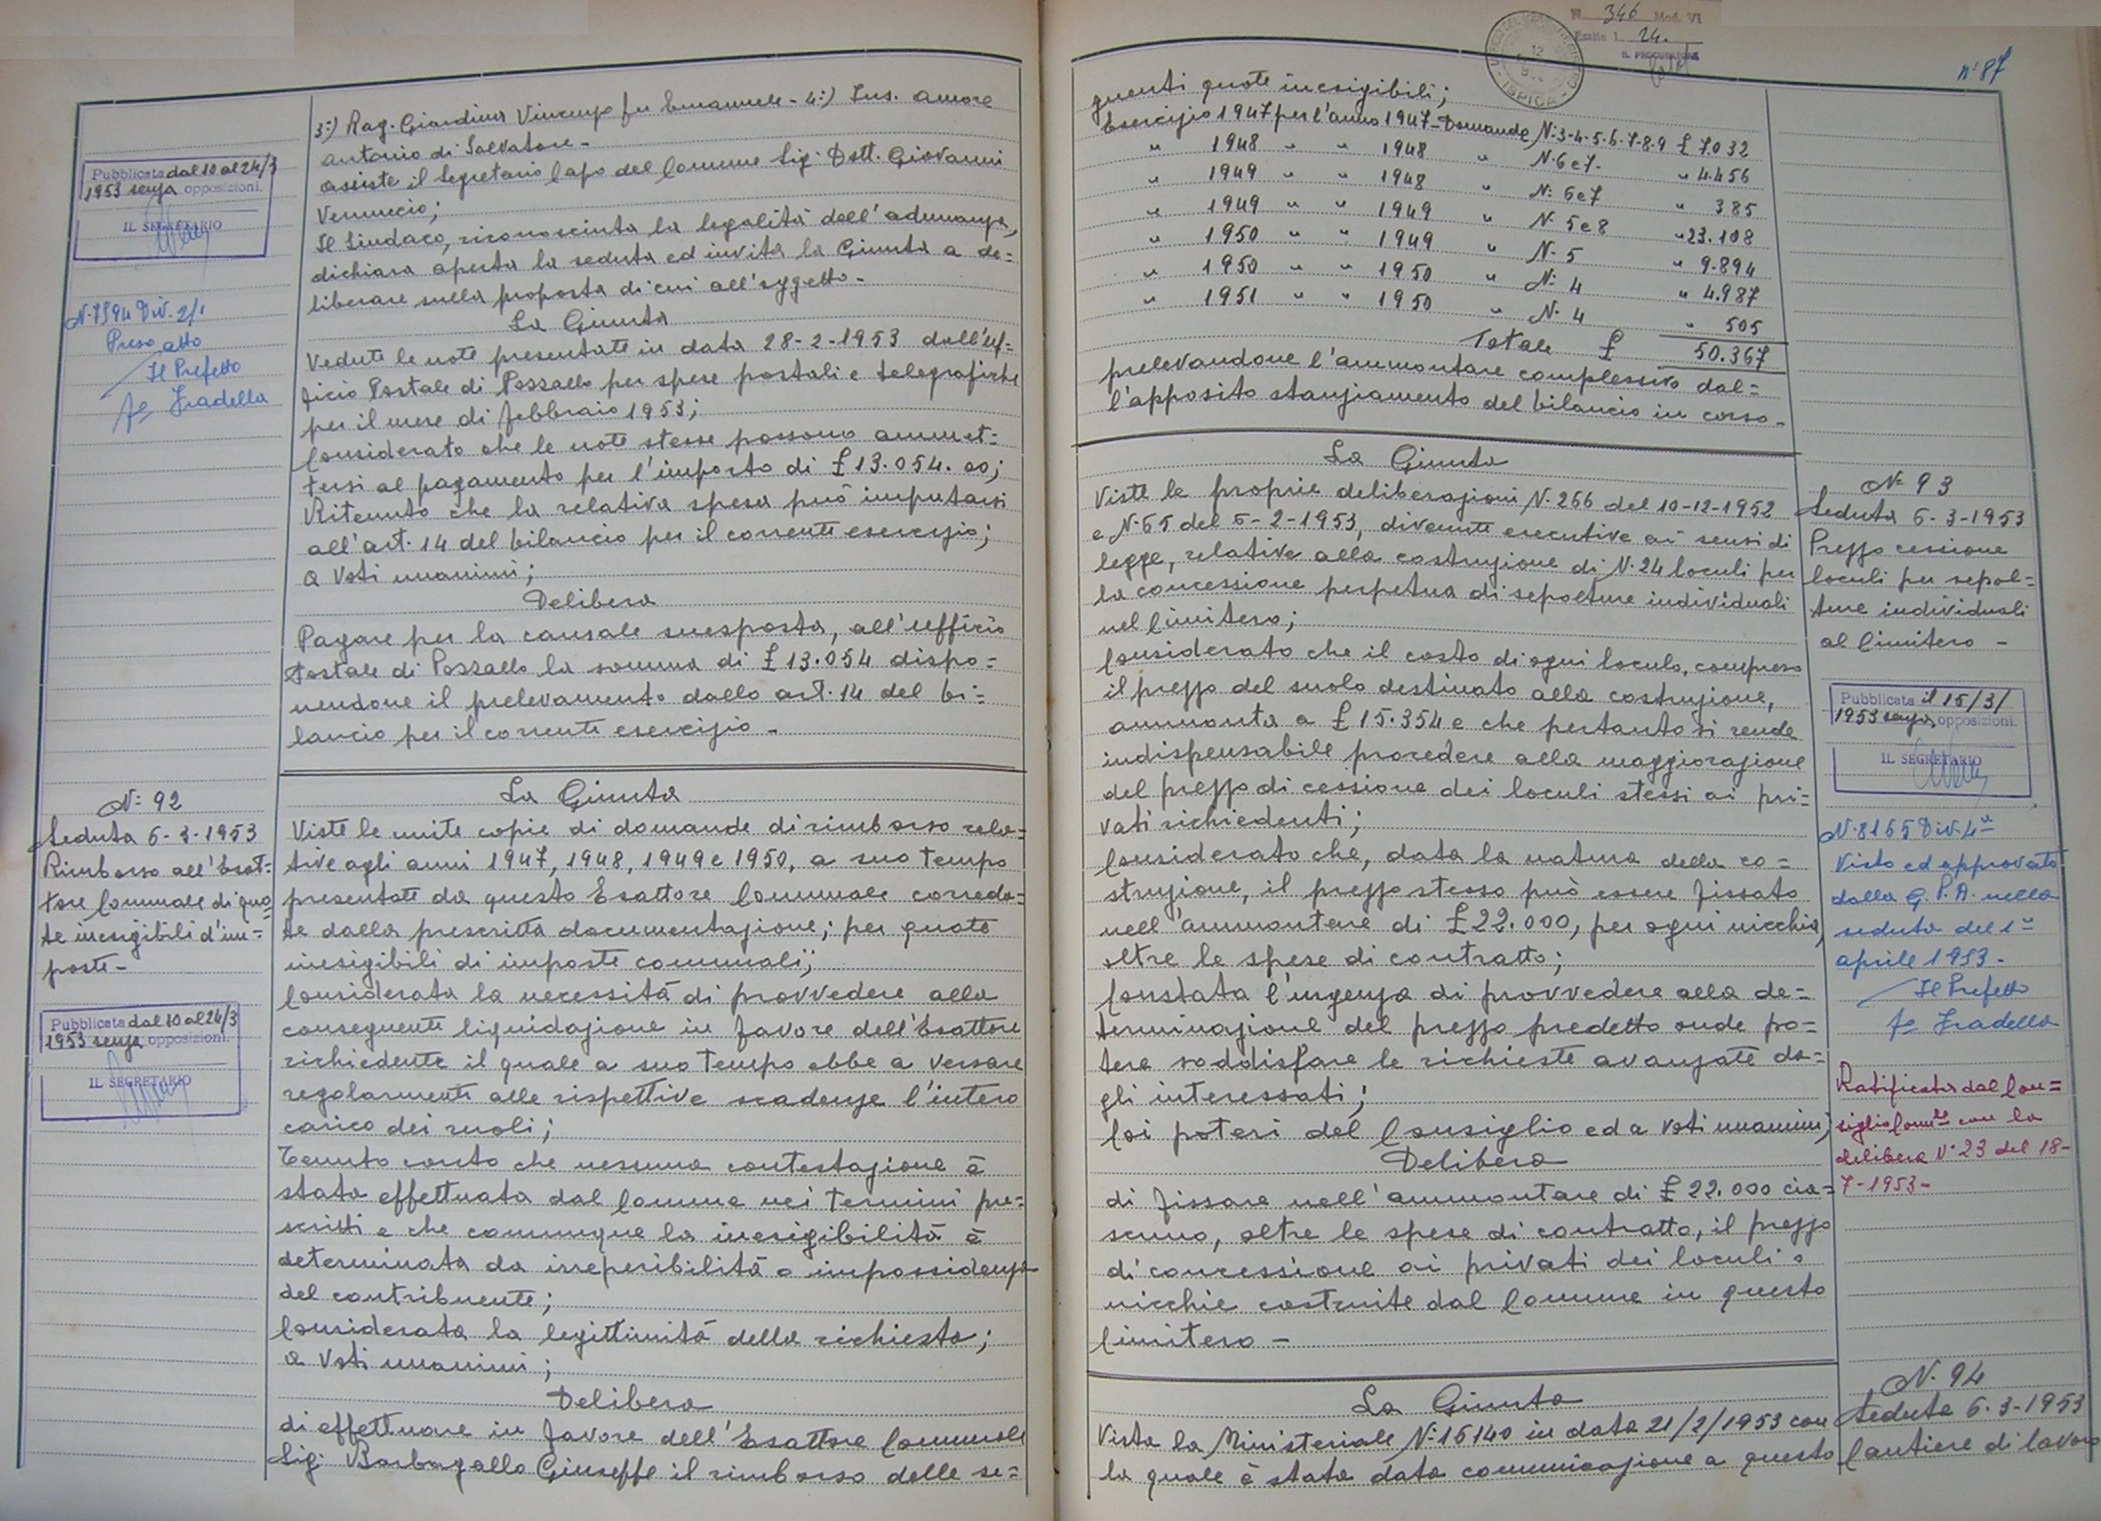 3°:) Rag. Giardina Vincenzo fu Emanuele - 4:) Ins. Amore
Antonio di Salvatore -
Assiste il Segretario Capo del Comune Sig. Dott. Giovanni
Il Sindaco, riconosciuta la legalità dell'adunanza,
dichiara aperta la seduta ed invita la Giunta a de=
liberare sulla proposta di cui all'oggetto -
La Giunta
Vedute le note presentate in data 28-2-1953 dall'Uf=
ficio Postale di Pozzallo per spese postali e telegrafiche
per il mese di febbraio 1953;
Considerato che le note stesse possono ammet=
tersi al pagamento per l'importo di £ 13.054.00;
Ritenuto che la relativa spesa può imputarsi
all'art. 14 del bilancio per il corrente esercizio;
a voti unanimi;
Delibera
Pagare per la causale suesposta, all'Ufficio
Postale di Pozzallo la somma di £ 13.054 dispo=
nendone il prelevamento dallo art. 14 del bi=
lancio per il corrente esercizio -
Pubblicata dal 10 al 24/3
1953 senza opposizioni.
IL SEGRETARIO
N. 7594 Div. 2/1
Preso atto
Il Prefetto
fo Fradella
N: 92
Seduta 6-3-1953
Rimborso all'Esat=
tore Comunale di quo=
te inesigibili d'im=
poste -
Pubblicata dal 10 al 24/3
1953 senza opposizioni.
IL SEGRETARIO
La Giunta
Viste le unite copie di domande di rimborso rela=
tive agli anni 1947, 1948, 1949 e 1950, a suo tempo
presentate da questo Esattore Comunale correda=
te dalla prescritta documentazione; per quote
inesigibili di imposte comunali;
Considerata la necessità di provvedere alla
conseguente liquidazione in favore dell'Esattore
richiedente il quale a suo tempo ebbe a versare
regolarmente alle rispettive scadenze l'intero
carico dei ruoli;
Tenuto conto che nessuna contestazione è
stata effettuata dal Comune nei termini pre=
scritti e che comunque la inesigibilità è
determinata da irreperibilità o impossidenza
del contribuente;
Considerata la legittimità della richiesta;
a voti unanimi;
Delibera
di effettuare in favore dell'Esattore Comunale
Sig. Barbagallo Giuseppe il rimborso delle se=
N. 346 Mod. VI
Esatte L. 24.
IL PROCURATORE
ISPICA
n° 87
guenti quote inesigibili;
Esercizio 1947 per l'anno 1947 - Domande N: 3-4-5-6-7-8-9 £ 7.032
" 1948 " " 1948 " N. 6 e 7. " 4.456
" 1949 " " 1948 " N: 6 e 7 " 385
" 1949 " " 1949 " N. 5 e 8 " 23.108
" 1950 " " 1949 " N. 5 " 9.894
" 1950 " " 1950 " N: 4 " 4.987
" 1951 " " 1950 " N. 4 " 505
Totale £ 50.367
prelevandone l'ammontare complessivo dal=
l'apposito stanziamento del bilancio in corso -
La Giunta
Viste le proprie deliberazioni N. 266 del 10-12-1952
e N. 65 del 6-2-1953, divenute esecutive ai sensi di
legge, relative alla costruzione di N. 24 loculi per
la concessione perpetua di sepolture individuali
nel Cimitero;
Considerato che il costo di ogni loculo, compreso
il prezzo del suolo destinato alla costruzione,
ammonta a £ 15.354 e che pertanto si rende
indispensabile procedere alla maggiorazione
del prezzo di cessione dei loculi stessi ai pri=
vati richiedenti;
Considerato che, data la natura della co=
struzione, il prezzo stesso può essere fissato
nell'ammontare di £ 22.000, per ogni nicchia,
oltre le spese di contratto;
Constata l'urgenza di provvedere alla de=
terminazione del prezzo predetto onde po=
tere soddisfare le richieste avanzate da=
gli interessati;
Coi poteri del Consiglio ed a voti unanimi;
Delibera
di fissare nell'ammontare di £ 22.000 cia=
scuno, oltre le spese di contratto, il prezzo
di concessione ai privati dei loculi o
nicchie costruite dal Comune in questo
Cimitero -
N. 93
Seduta 6-3-1953
Prezzo cessione
loculi per sepol=
ture individuali
al Cimitero -
Pubblicata il 15/3/
1953 senza opposizioni.
IL SEGRETARIO
N. 8165 Div. 4a
Visto ed approvato
dalla G.P.A. nella
seduta del 1°
aprile 1953 -
Il Prefetto
fo Fradella
Ratificata dal Con=
siglio Comle con la
delibera N° 23 del 18-
7-1953 -
La Giunta
Vista la Ministeriale N: 16140 in data 21/2/1953 con
la quale è stata data comunicazione a questo
N. 94
Seduta 6-3-1953
Cantiere di lavoro